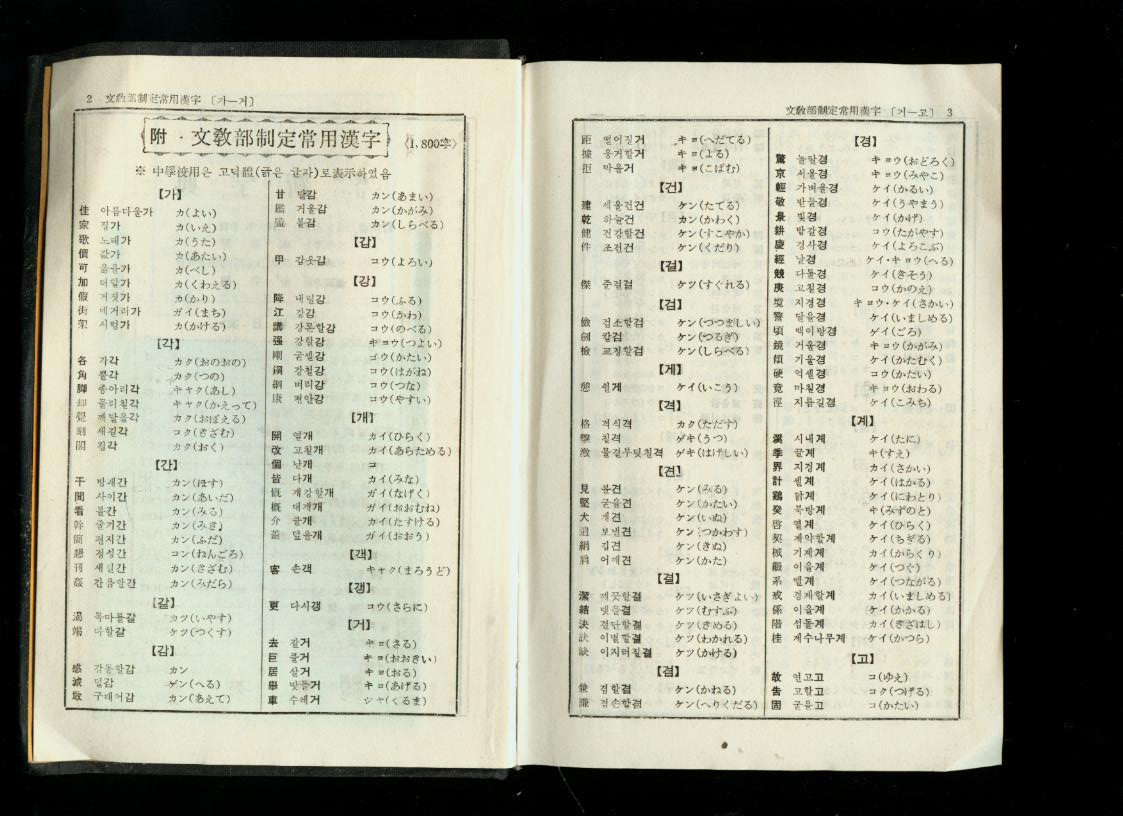 2 文敎部制定常用漢字 〔가—거〕
附 · 文敎部制定常用漢字 〈1,800字〉
※ 中學校用은 고딕體(굵은 글자)로表示하였음
【가】
佳 아름다울가 カ(よい)
家 집가 カ(いえ)
歌 노래가 カ(うた)
價 값가 カ(あたい)
可 옳을가 カ(べし)
加 더할가 カ(くわえる)
假 거짓가 カ(かり)
街 네거리가 ガイ(まち)
架 시렁가 カ(かける)
【각】
各 각각 カク(おのおの)
角 뿔각 カク(つの)
脚 종아리각 キャク(あし)
却 물리칠각 キャク(かえって)
覺 깨달을각 カク(おぼえる)
刻 새길각 コク(きざむ)
閣 집각 カク(おく)
【간】
干 방패간 カン(ほす)
間 사이간 カン(あいだ)
看 볼간 カン(みる)
幹 줄기간 カン(みき)
簡 편지간 カン(ふだ)
懇 정성간 コン(ねんごろ)
刊 새길간 カン(きざむ)
姦 간음할간 カン(みだら)
【갈】
渴 목마를갈 カツ(いやす)
竭 다할갈 ケツ(つくす)
【감】
感 감동할감 カン
減 덜감 ゲン(へる)
敢 구태어감 カン(あえて)
甘 달감 カン(あまい)
鑑 거울감 カン(かがみ)
監 볼감 カン(しらべる)
【갑】
甲 갑옷갑 コウ(よろい)
【강】
降 내릴강 コウ(ふる)
江 강강 コウ(かわ)
講 강론할강 コウ(のべる)
强 강할강 キョウ(つよい)
剛 굳셀강 ゴウ(かたい)
鋼 강철강 コウ(はがね)
綱 벼리강 コウ(つな)
康 편안강 コウ(やすい)
【개】
開 열개 カイ(ひらく)
改 고칠개 カイ(あらためる)
個 낱개 コ
皆 다개 カイ(みな)
慨 개강할개 ガイ(なげく)
槪 대개개 ガイ(おおむね)
介 끌개 カイ(たすける)
蓋 덮을개 ガイ(おおう)
【객】
客 손객 キャク(まろうど)
【갱】
更 다시갱 コウ(さらに)
【거】
去 갈거 キョ(さる)
巨 클거 キョ(おおきい)
居 살거 キョ(おる)
擧 맛들거 キョ(あげる)
車 수레거 シャ(くるま)
文敎部制定常用漢字 〔거—고〕 3
距 떨어질거 キョ(へだてる)
據 웅거할거 キョ(よる)
拒 막을거 キョ(こばむ)
【건】
建 세울건건 ケン(たてる)
乾 하늘건 カン(かわく)
健 건강할건 ケン(すこやか)
件 조건건 ケン(くだり)
【걸】
傑 준걸걸 ケツ(すぐれる)
【검】
儉 검소할검 ケン(つつましい)
劍 칼검 ケン(つるぎ)
檢 교정할검 ケン(しらべる)
【게】
憩 쉴게 ケイ(いこう)
【격】
格 격식격 カク(ただす)
擊 칠격 ゲキ(うつ)
激 물결부딪칠격 ゲキ(はげしい)
【견】
見 볼견 ケン(みる)
堅 굳을견 ケン(かたい)
犬 개견 ケン(いぬ)
遣 보낼견 ケン(つかわす)
絹 깁견 ケン(きぬ)
肩 어깨견 ケン(かた)
【결】
潔 깨끗할결 ケツ(いさぎよい)
結 맺을결 ケツ(むすぶ)
決 결단할결 ケツ(きめる)
訣 이별할결 ケツ(わかれる)
缺 이지러질결 ケツ(かける)
【겸】
兼 겸할겸 ケン(かねる)
謙 겸손할겸 ケン(へりくだる)
【경】
驚 놀랄경 キョウ(おどろく)
京 서울경 キョウ(みやこ)
輕 가벼울경 ケイ(かるい)
敬 받들경 ケイ(うやまう)
景 빛경 ケイ(かげ)
耕 밭갈경 コウ(たがやす)
慶 경사경 ケイ(よろこぶ)
經 날경 ケイ·キョウ(へる)
競 다툴경 ケイ(きそう)
庚 고칠경 コウ(かのえ)
境 지경경 キョウ·ケイ(さかい)
警 달을경 ケイ(いましめる)
頃 백이랑경 ゲイ(ごろ)
鏡 거울경 キョウ(かがみ)
傾 기울경 ケイ(かたむく)
硬 억셀경 コウ(かだい)
竟 마칠경 キョウ(おわる)
徑 지름길경 ケイ(こみち)
【계】
溪 시내계 ケイ(たに)
季 끝계 キ(すえ)
界 지경계 カイ(さかい)
計 셀계 ケイ(はかる)
鷄 닭계 ケイ(にわとり)
癸 북방계 キ(みずのと)
啓 열계 ケイ(ひらく)
契 계약할계 ケイ(ちぎる)
械 기계계 カイ(からくり)
繼 이을계 ケイ(つぐ)
系 맬계 ケイ(つながる)
戒 경계할계 カイ(いましめる)
係 이을계 ケイ(かかる)
階 섬돌계 カイ(きざはし)
桂 계수나무계 ケイ(かつら)
【고】
故 연고고 コ(ゆえ)
告 고할고 コク(つげる)
固 굳을고 コ(かたい)